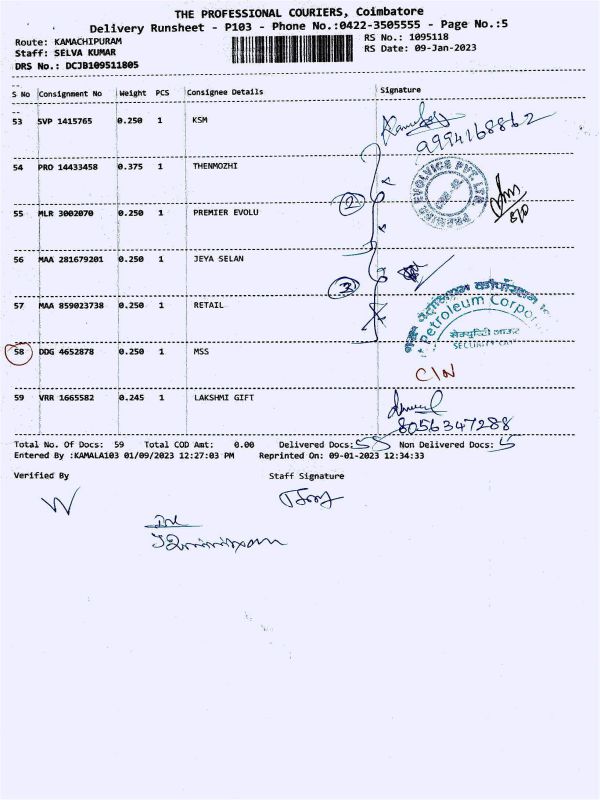 THE PROFESSIONAL COURIERS, Coimbatore
Delivery Runsheet - P103 - Phone No.:0422-3505555 - Page No.:5
Route: KAMACHIPURAM
Staff: SELVA KUMAR
DRS No.: DCJB109511805
RS No.: 1095118
RS Date: 09-Jan-2023
S No Consignment No Weight PCS Consignee Details Signature
53 SVP 1415765 0.250 1 KSM
9994168862
54 PRO 14433458 0.375 1 THENMOZHI
EVOLVICE PVT. LTD
2
55 MLR 3002070 0.250 1 PREMIER EVOLU
56 MAA 281679201 0.250 1 JEYA SELAN
3
57 MAA 859023738 0.250 1 RETAIL
Petroleum Corpor
58 DDG 4652878 0.250 1 MSS
C/N
59 VRR 1665582 0.245 1 LAKSHMI GIFT
8056347288
Total No. Of Docs: 59 Total COD Amt: 0.00 Delivered Docs: 58 Non Delivered Docs: 5
Entered By :KAMALA103 01/09/2023 12:27:03 PM Reprinted On: 09-01-2023 12:34:33
Verified By Staff Signature